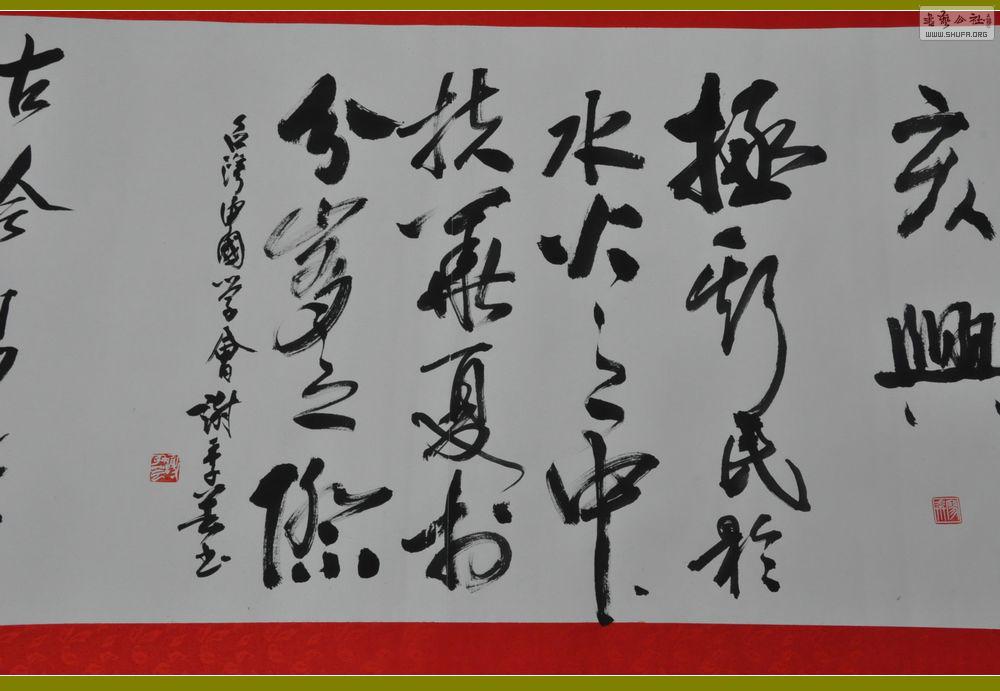 書藝公社
WWW.SHUFA.ORG
亥興
極斯民於
水火之中
扶華夏於
分崩之際
台灣中國学會謝书
古今